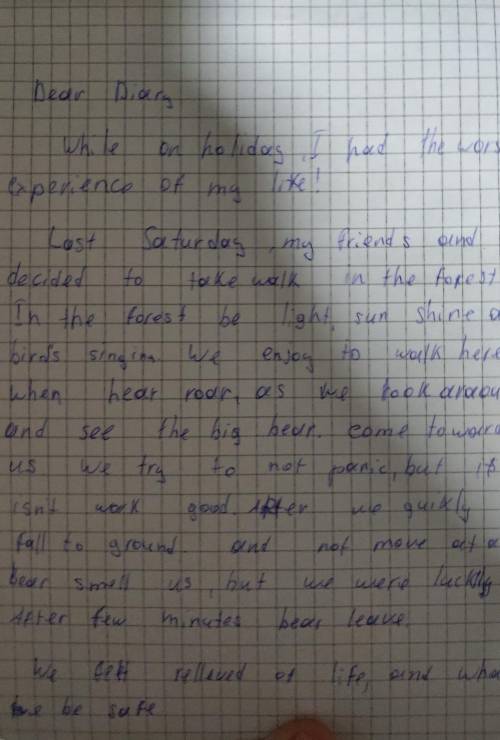 Dear Diary
While on holiday, I had the wors
experience of my life!
Last Saturday, my friends and
decided to take walk in the forest
In the forest be light, sun shine a
birds singing. We enjoy to walk here
when hear roar, as we look arou
and see the big bear. come towar
us we try to not panic, but it
isn't work good. After we quikly
fall to ground. and not move at a
bear smell us, but we were luckly
After few minutes bear leave.
We felt relleved of life, and wha
we be safe